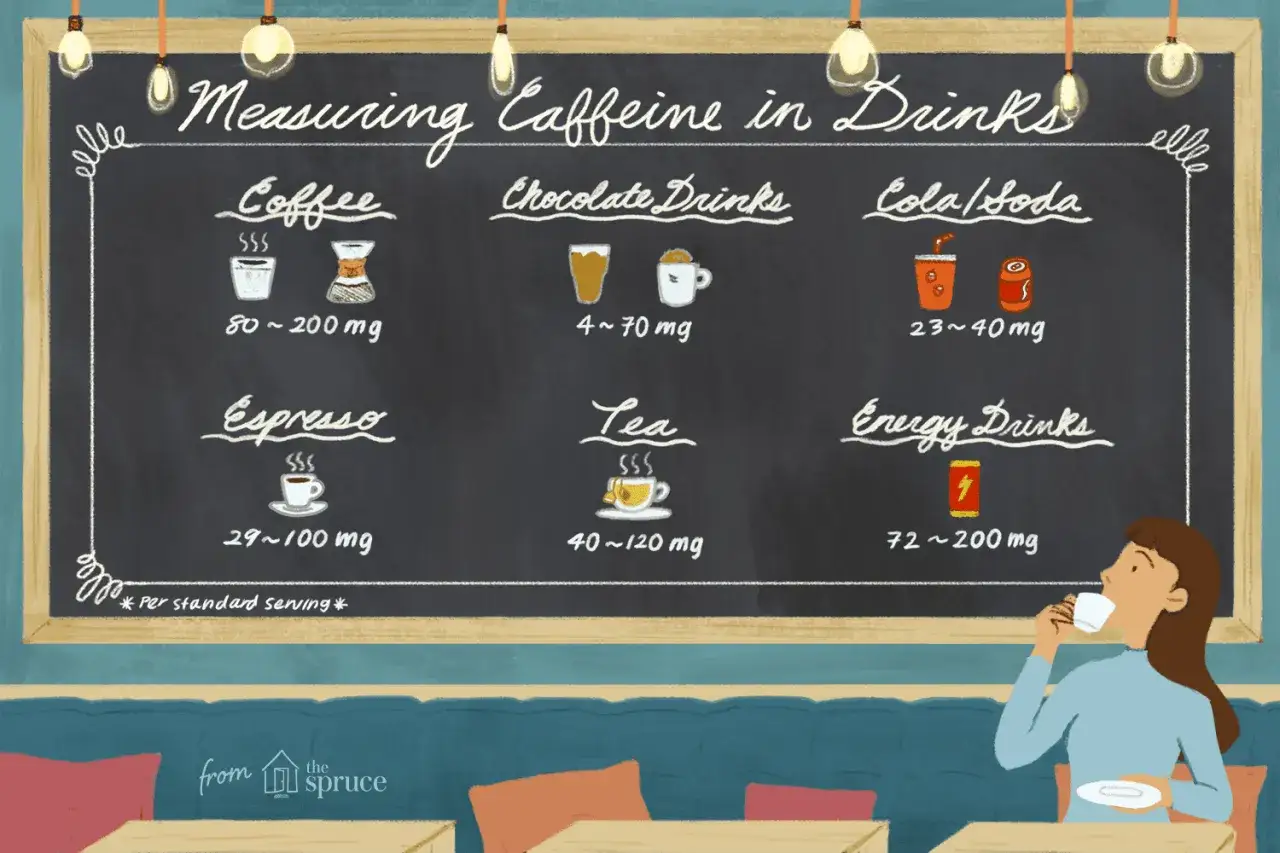 Measuring Caffeine in Drinks
Coffee
80~200 mg
Chocolate Drinks
4~70 mg
Cola/Soda
23~40 mg
Espresso
29~100 mg
Tea
40~120 mg
Energy Drinks
72~200 mg
*Per standard serving*
from the spruce